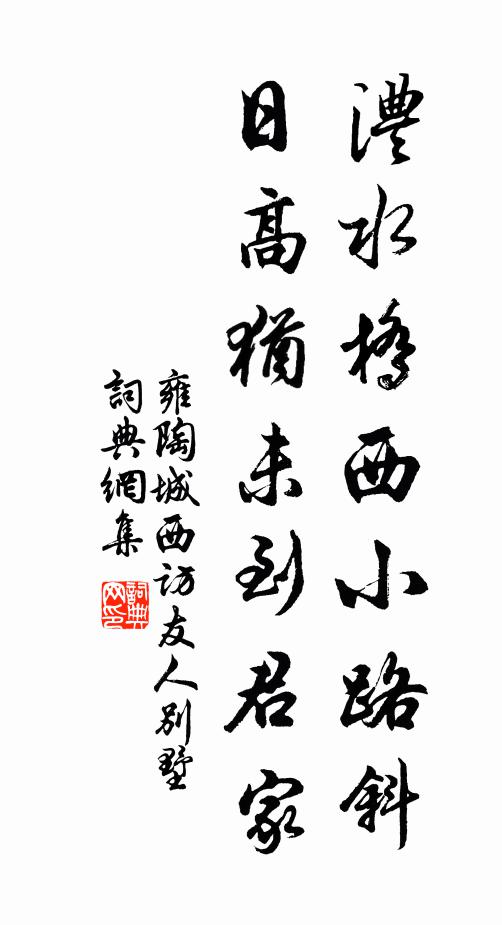 澧水橋西小路斜
日高猶未到君家
雍陶城西訪友人別墅
詞典網集
詞典网印